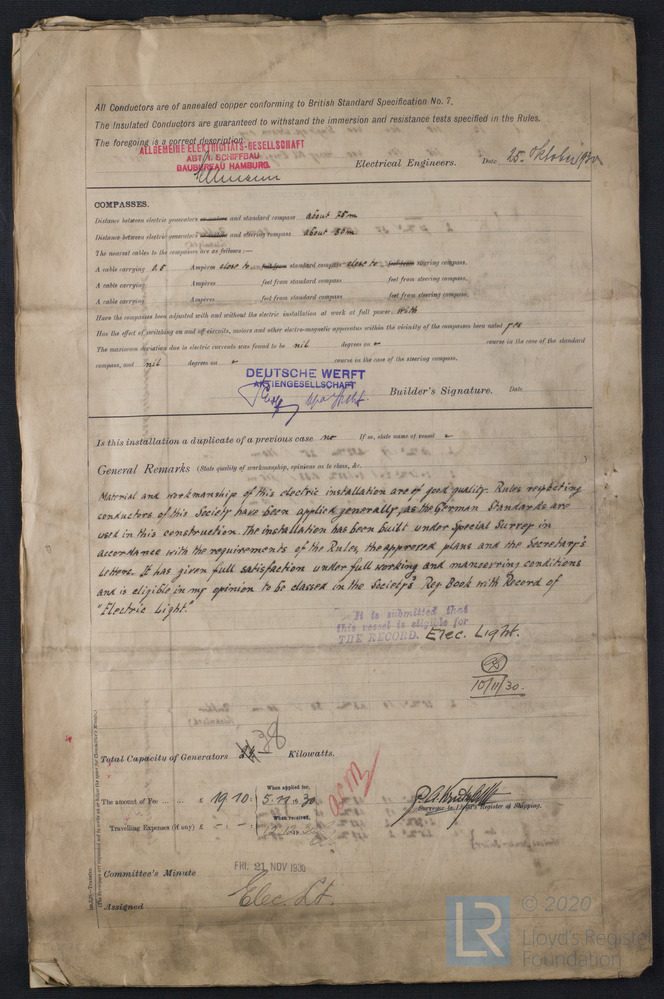 All Conductors are of annealed copper conforming to British Standard Specification No. 7.
The Insulated Conductors are guaranteed to withstand the immersion and resistance tests specified in the Rules.
The foregoing is a correct description.
ALLGEMEINE ELEKTRICITÄTS-GESELLSCHAFT
ABT. SCHIFFBAU
BAUBUREAU HAMBURG.
Electrical Engineers. Date 25. Oktober 1930
COMPASSES.
Distance between electric generators and standard compass about 75 m
Distance between electric generators and steering compass about 50 m
The nearest cables to the compasses are as follows:—
A cable carrying 0.5 Ampères close to standard compass close to steering compass.
A cable carrying Ampères feet from standard compass feet from steering compass.
A cable carrying Ampères feet from standard compass feet from steering compass.
Have the compasses been adjusted with and without the electric installation at work at full power with
Has the effect of switching on and off circuits, motors and other electro-magnetic apparatus within the vicinity of the compasses been noted yes
The maximum deviation due to electric currents was found to be nil degrees on course in the case of the standard
compass, and nil degrees on course in the case of the steering compass.
DEUTSCHE WERFT
AKTIENGESELLSCHAFT
Builder's Signature. Date
Is this installation a duplicate of a previous case no If so, state name of vessel
General Remarks (State quality of workmanship, opinions as to class, &c.
Material and workmanship of this electric installation are of good quality. Rules respecting
conductors of this Society have been applied generally, as the German Standards are
used in this construction. The installation has been built under Special Survey in
accordance with the requirements of the Rules, the approved plans and the Secretary's
Letters. It has given full satisfaction under full working and manoeuvring conditions
and is eligible in my opinion to be classed in the Society's Reg Book with Record of
"Electric Light."
It is submitted that
this vessel is eligible for
THE RECORD. Elec. Light.
10/11/30.
Total Capacity of Generators 38 Kilowatts.
When applied for,
The amount of Fee ... ... £ 19.10: 5.11.1930
When received,
Travelling Expenses (if any) £ - : - :
Surveyor to Lloyd's Register of Shipping.
Committee's Minute FRI. 21 NOV 1930
Assigned Elec. Lt.
LR
© 2020
Lloyd's Register
Foundation